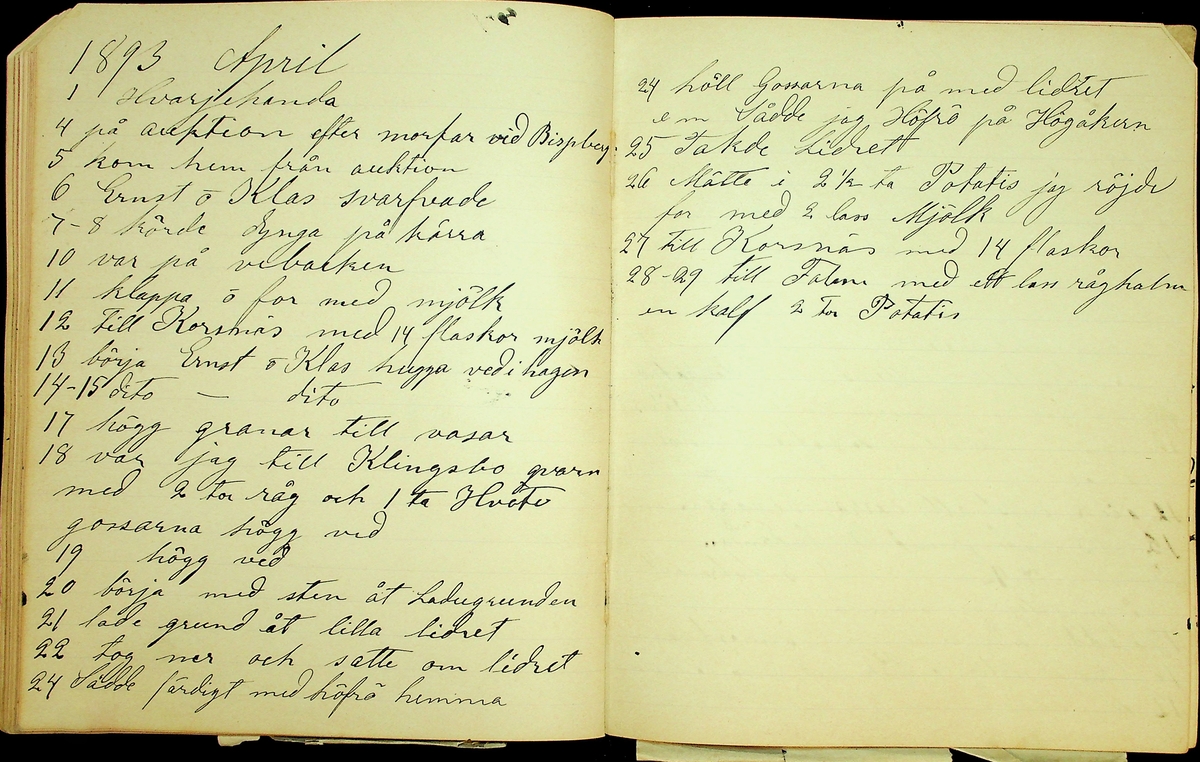 1893 April
1 Hvarjehanda
4 på auktion efter morfar vid Bispberg
5 kom hem från auktion
6 Ernst o Klas svarfvade
7-8 körde dynga på kärra
10 var på vibacken
11 klappa o for med mjölk
12 till Korsnäs med 14 flaskor mjölk
13 börja Ernst o Klas hugga ved i hagen
14-15 dito — dito
17 högg granar till vasar
18 var jag till Klingsbo qvarn
med 2 tor råg och 1 ta Hvete
gossarna högg ved
19 högg ved
20 börja med sten åt Ladugrunden
21 lade grund åt lilla lidret
22 tog ner och satte om lidret
24 Sådde färdigt med höfrö hemma
24 höll Gossarna på med lidret
e m Sådde jag Höfrö på Högåkern
25 Takde Lidret
26 Mätte i 2 1/2 ta Potatis jag röjde
for med 2 lass Mjölk
27 till Korsnäs med 14 flaskor
28-29 till Falun med ett lass råghalm
en kalf 2 tor Potatis